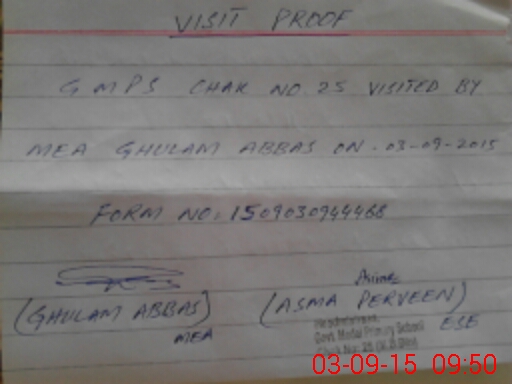 VISIT PROOF
GMPS CHAK NO. 25 VISITED BY
MEA GHULAM ABBAS ON. 03-09-2015
FORM NO: 1509030944468
(GHULAM ABBAS)
MEA
(ASMA PERVEEN)
ESE
Headmistress
Govt. Model Primary School
Chak No: 25
03-09-15 09:50